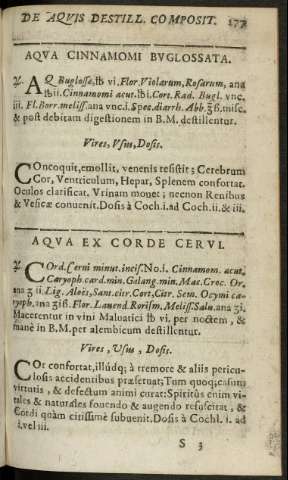 DE AQVIS DESTILL. COMPOSIT. 277
AQVA CINNAMOMI BVGLOSSATA.
℞. AQ Buglossæ, ℔ vi. Flor. Violarum, Rosarum, ana
℔ ii. Cinnamomi acut. ℔ i. Cort. Rad. Bugl. vnc.
iii. Fl. Borr. meliss. ana vnc. i. Spec. diarrh. Abb. ʒß. misc.
& post debitam digestionem in B. M. destillentur.
Vires, Vsus, Dosis.
COncoquit, emollit, venenis resistit; Cerebrum
Cor, Ventriculum, Hepar, Splenem confortat.
Oculos clarificat. Vrinam mouet; necnon Renibus
& Vesicæ conuenit. Dosis à Coch. i. ad Coch. ii. & iii.
AQVA EX CORDE CERVI.
℞. COrd. Cerui minut. incis. No. i. Cinnamom. acut.
Caryoph. card. min. Galang. min. Mac. Croc. Or.
ana ʒ ii. Lig. Aloës, Sant. citr. Cort. Citr. Sem. Ocymi ca-
ryoph. ana ʒiß. Flor. Lauend. Rorism. Meliss. Salu. ana ʒi.
Macerentur in vini Maluatici ℔ vi. per noctem, &
manè in B. M. per alembicum destillentur.
Vires, Vsus, Dosis.
COr confortat, illúdq; à tremore & aliis pericu-
losis accidentibus præseruat; Tum quoq; casum
virtutis, & defectum animi curat: Spiritùs enim vi-
tales & naturales fouendo & augendo resuscitat, &
Cordi quàm citissimè subuenit. Dosis à Cochl. i. ad
i. vel iii.
S 3